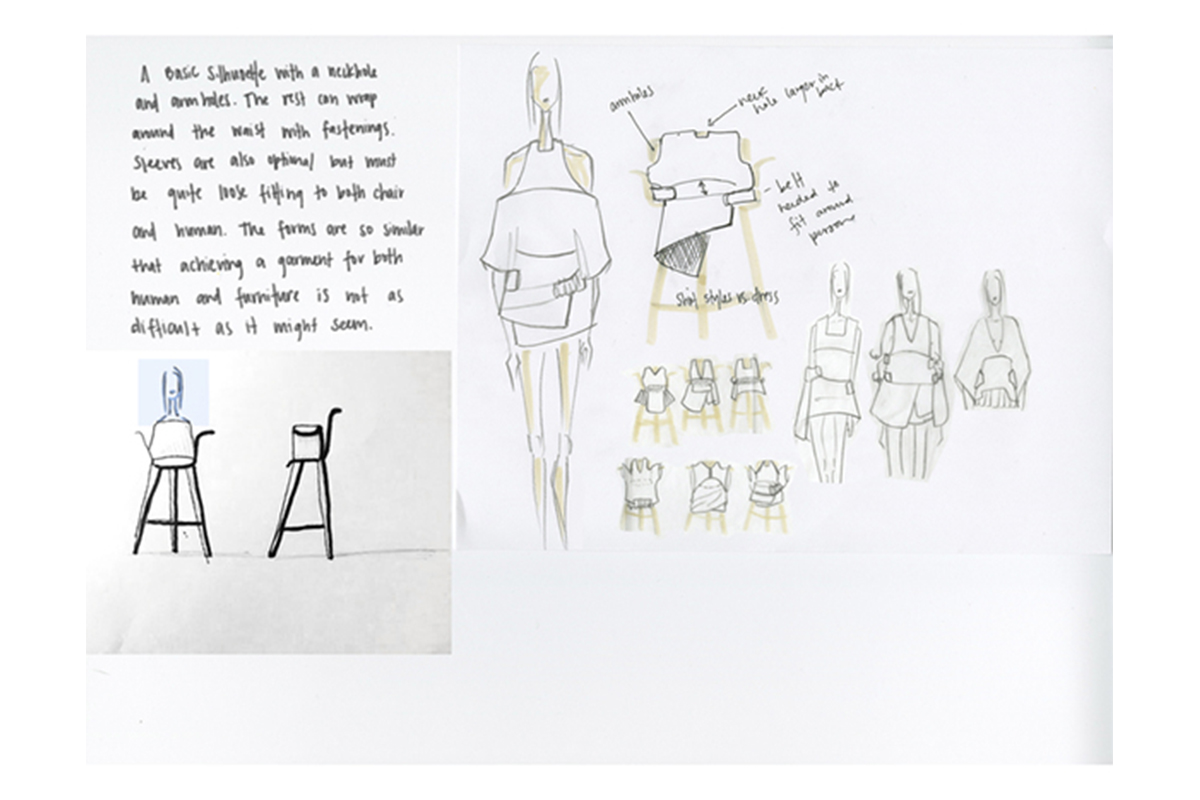 A Basic Silhuette with a neckhole
and armholes. The rest can wrap
around the waist with fastenings.
Sleeves are also optional but must
be quite loose fitting to both chair
and human. The forms are so similar
that achieving a garment for both
human and furniture is not as
difficult as it might seem.
armholes
neck
hole larger in
back
- belt
needed to
fit around
person
skirt styles vs dress